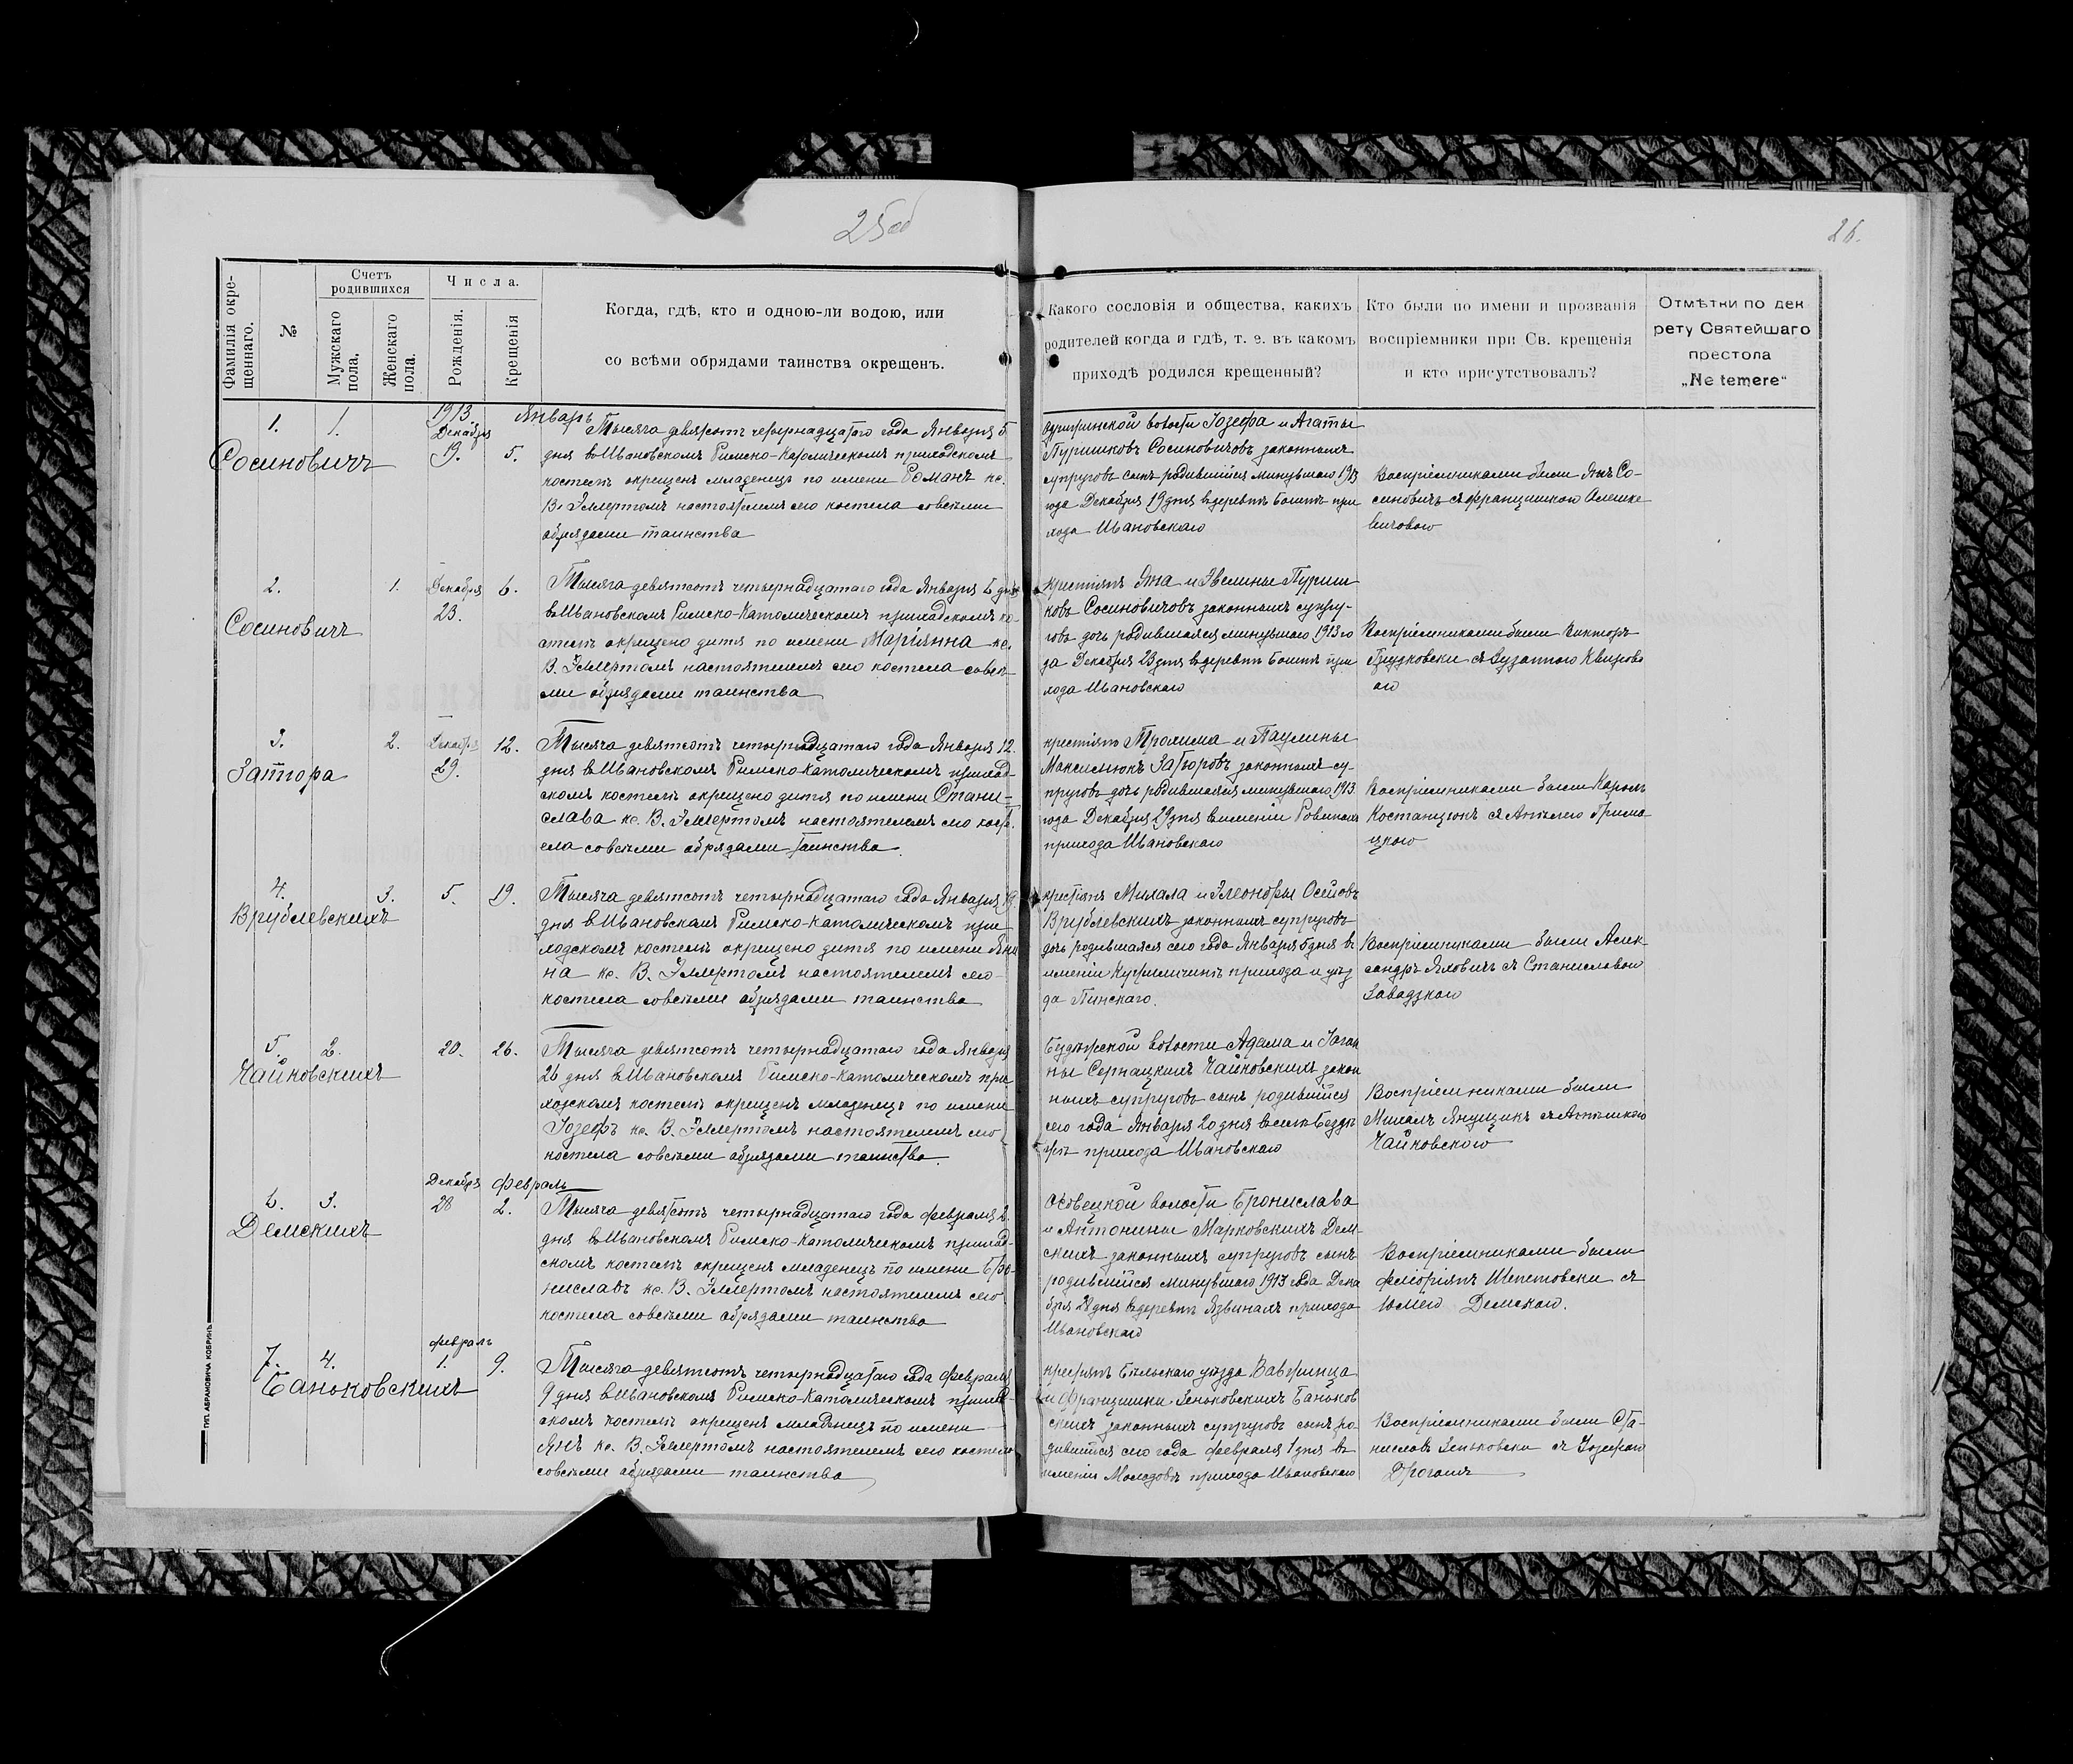 25об
26.
Фамилія окре-
щеннаго.
№
Счетъ
родившихся
Мужскаго
пола.
Женскаго
пола.
Числа.
Рожденія.
Крещенія
Когда, гдѣ, кто и одною-ли водою, или
со всѣми обрядами таинства окрещенъ.
Какого сословія и общества, какихъ
родителей когда и гдѣ, т. е. въ какомъ
приходѣ родился крещенный?
Кто были по имени и прозванія
воспріемники при Св. крещенія
и кто присутствовалъ?
Отмѣтки по дек
рету Святейшаго
престола
„Ne temere“
1. 1.
Сосиновичъ
1913
Декабря
19. 5.
Январь
Тысяча девятсотъ четырнадцатаго года Января 5
дня въ Ивановскомъ Римско-Католическомъ приходскомъ
костелѣ окрещенъ младенецъ по имени Романъ кс.
В. Эллертомъ настоятелемъ сего костела совсѣми
обрядами таинства
волости Іозефа и Агаты
Пуришковъ Сосиновичовъ законныхъ
супруговъ сынъ родившійся минувшаго 1913
года Декабря 19 дня въ деревнѣ при
хода Ивановскаго
Воспріемниками были Янъ Со-
синовичъ съ Францишкою Олешке
вичовою
2. 1. Декабря 6.
23.
Сосиновичъ
Тысяча девятсотъ четырнадцатаго года Января 6 дня
въ Ивановскомъ Римско-Католическомъ приходскомъ ко-
стелѣ окрещено дитя по имени Маріянна кс.
В. Эллертомъ настоятелемъ сего костела совсѣ-
ми обрядами таинства
крестьянъ Яна и Эвелины Пуриш
ковъ Сосиновичовъ законныхъ супру-
говъ дочь родившаяся минувшаго 1913 го
да Декабря 23 дня въ деревнѣ при
хода Ивановскаго
Воспріемниками были Викторъ
съ Зузанною
3. 2. Декабря 12.
29.
Затора
Тысяча девятсотъ четырнадцатаго года Января 12
дня въ Ивановскомъ Римско-Католическомъ приход-
скомъ костелѣ окрещено дитя по имени Стани-
слава кс. В. Эллертомъ настоятелемъ сего кост-
ела совсѣми обрядами таинства.
крестьянъ Трохима и Паулины
Максимюкъ Заторовъ законныхъ су-
пруговъ дочь родившаяся минувшаго 1913
года Декабря 29 дня въ имѣніи
прихода Ивановскаго
Воспріемниками были Кароль
съ
4. 3. 5. 19.
Врублевскихъ
Тысяча девятсотъ четырнадцатаго года Января 19
дня въ Ивановскомъ Римско-Католическомъ при
ходскомъ костелѣ окрещено дитя по имени Яни
на кс. В. Эллертомъ настоятелемъ сего
костела совсѣми обрядами таинства
крестьянъ Михала и Элеоноры
Врублевскихъ законныхъ супруговъ
дочь родившаяся сего года Января 5 дня въ
имѣніи прихода и уѣз
да Пинскаго.
Воспріемниками были Алек-
сандръ съ Станиславою
Завадзкою
5. 2. 20. 26.
Чайковскихъ
Тысяча девятсотъ четырнадцатаго года Января
26 дня въ Ивановскомъ Римско-Католическомъ при
ходскомъ костелѣ окрещенъ младенецъ по имени
Іозефъ кс. В. Эллертомъ настоятелемъ сего
костела совсѣми обрядами таинства.
волости Адама и Іоган
ны Сернацкихъ Чайковскихъ закон
ныхъ супруговъ сынъ родившійся
сего года Января 20 дня въ
прихода Ивановскаго
Воспріемниками были
Михалъ Янущикъ съ
Чайковскою
Декабря Февраль
6. 3. 28 2.
Демскихъ
Тысяча девятсотъ четырнадцатаго года Февраля 2
дня въ Ивановскомъ Римско-Католическомъ приход-
скомъ костелѣ окрещенъ младенецъ по имени Бро-
ниславъ кс. В. Эллертомъ настоятелемъ сего
костела совсѣми обрядами таинства
Осовецкой волости Бронислава
и Антонины Марковскихъ Дем-
скихъ законныхъ супруговъ сынъ
родившійся минувшаго 1913 года Дека
бря 28 дня въ деревнѣ Язвинахъ прихода
Ивановскаго
Воспріемниками были
съ
Демскою.
Февраль
7. 4. 1. 9.
Баньковскихъ
Тысяча девятсотъ четырнадцатаго года Февраля
9 дня въ Ивановскомъ Римско-Католическомъ приход-
скомъ костелѣ окрещенъ младенецъ по имени
Янъ кс. В. Эллертомъ настоятелемъ сего костела
совсѣми обрядами таинства
крестьянъ Бѣльскаго уѣзда Вавринца
и Францишки Зеньковскихъ Баньков
скихъ законныхъ супруговъ сынъ ро-
дившійся сего года Февраля 1 дня въ
имѣніи Молодовѣ прихода Ивановскаго
Воспріемниками были Ста-
ниславъ Зеньковски съ Іозефою
ТИП. АБРАМОВИЧА КОБРИНЪ